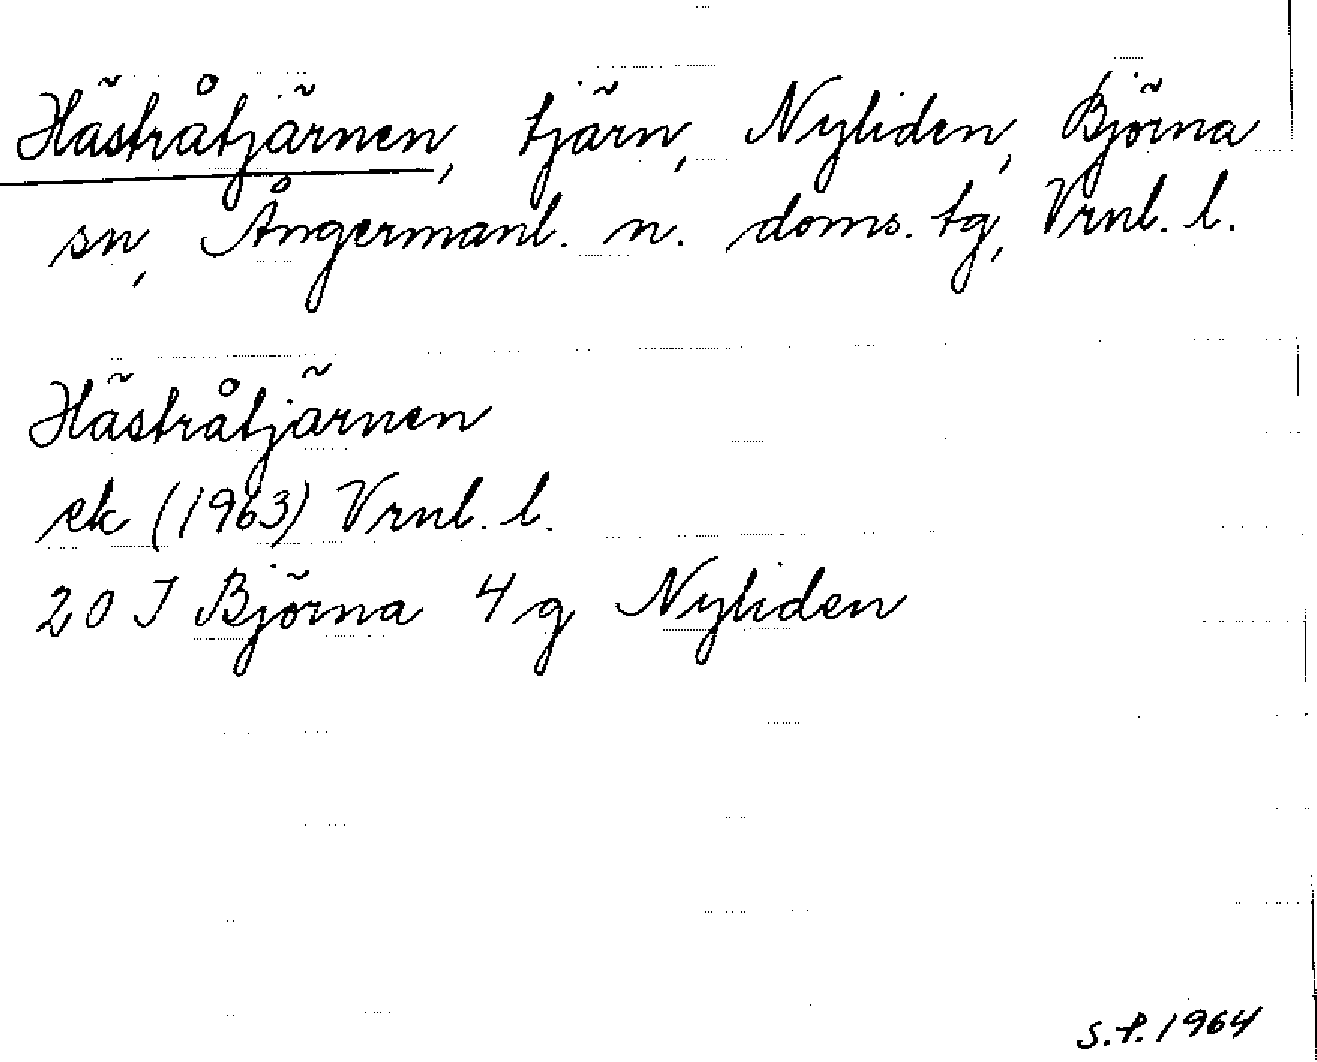 Hästråtjärnen, tjärn, Nyliden, Björna
sn, Ångermanl. n. doms. tg, Vrnl. l.
Hästråtjärnen
ek (1963) Vrnl. l.
20 I Björna 4 g Nyliden
S.P. 1964